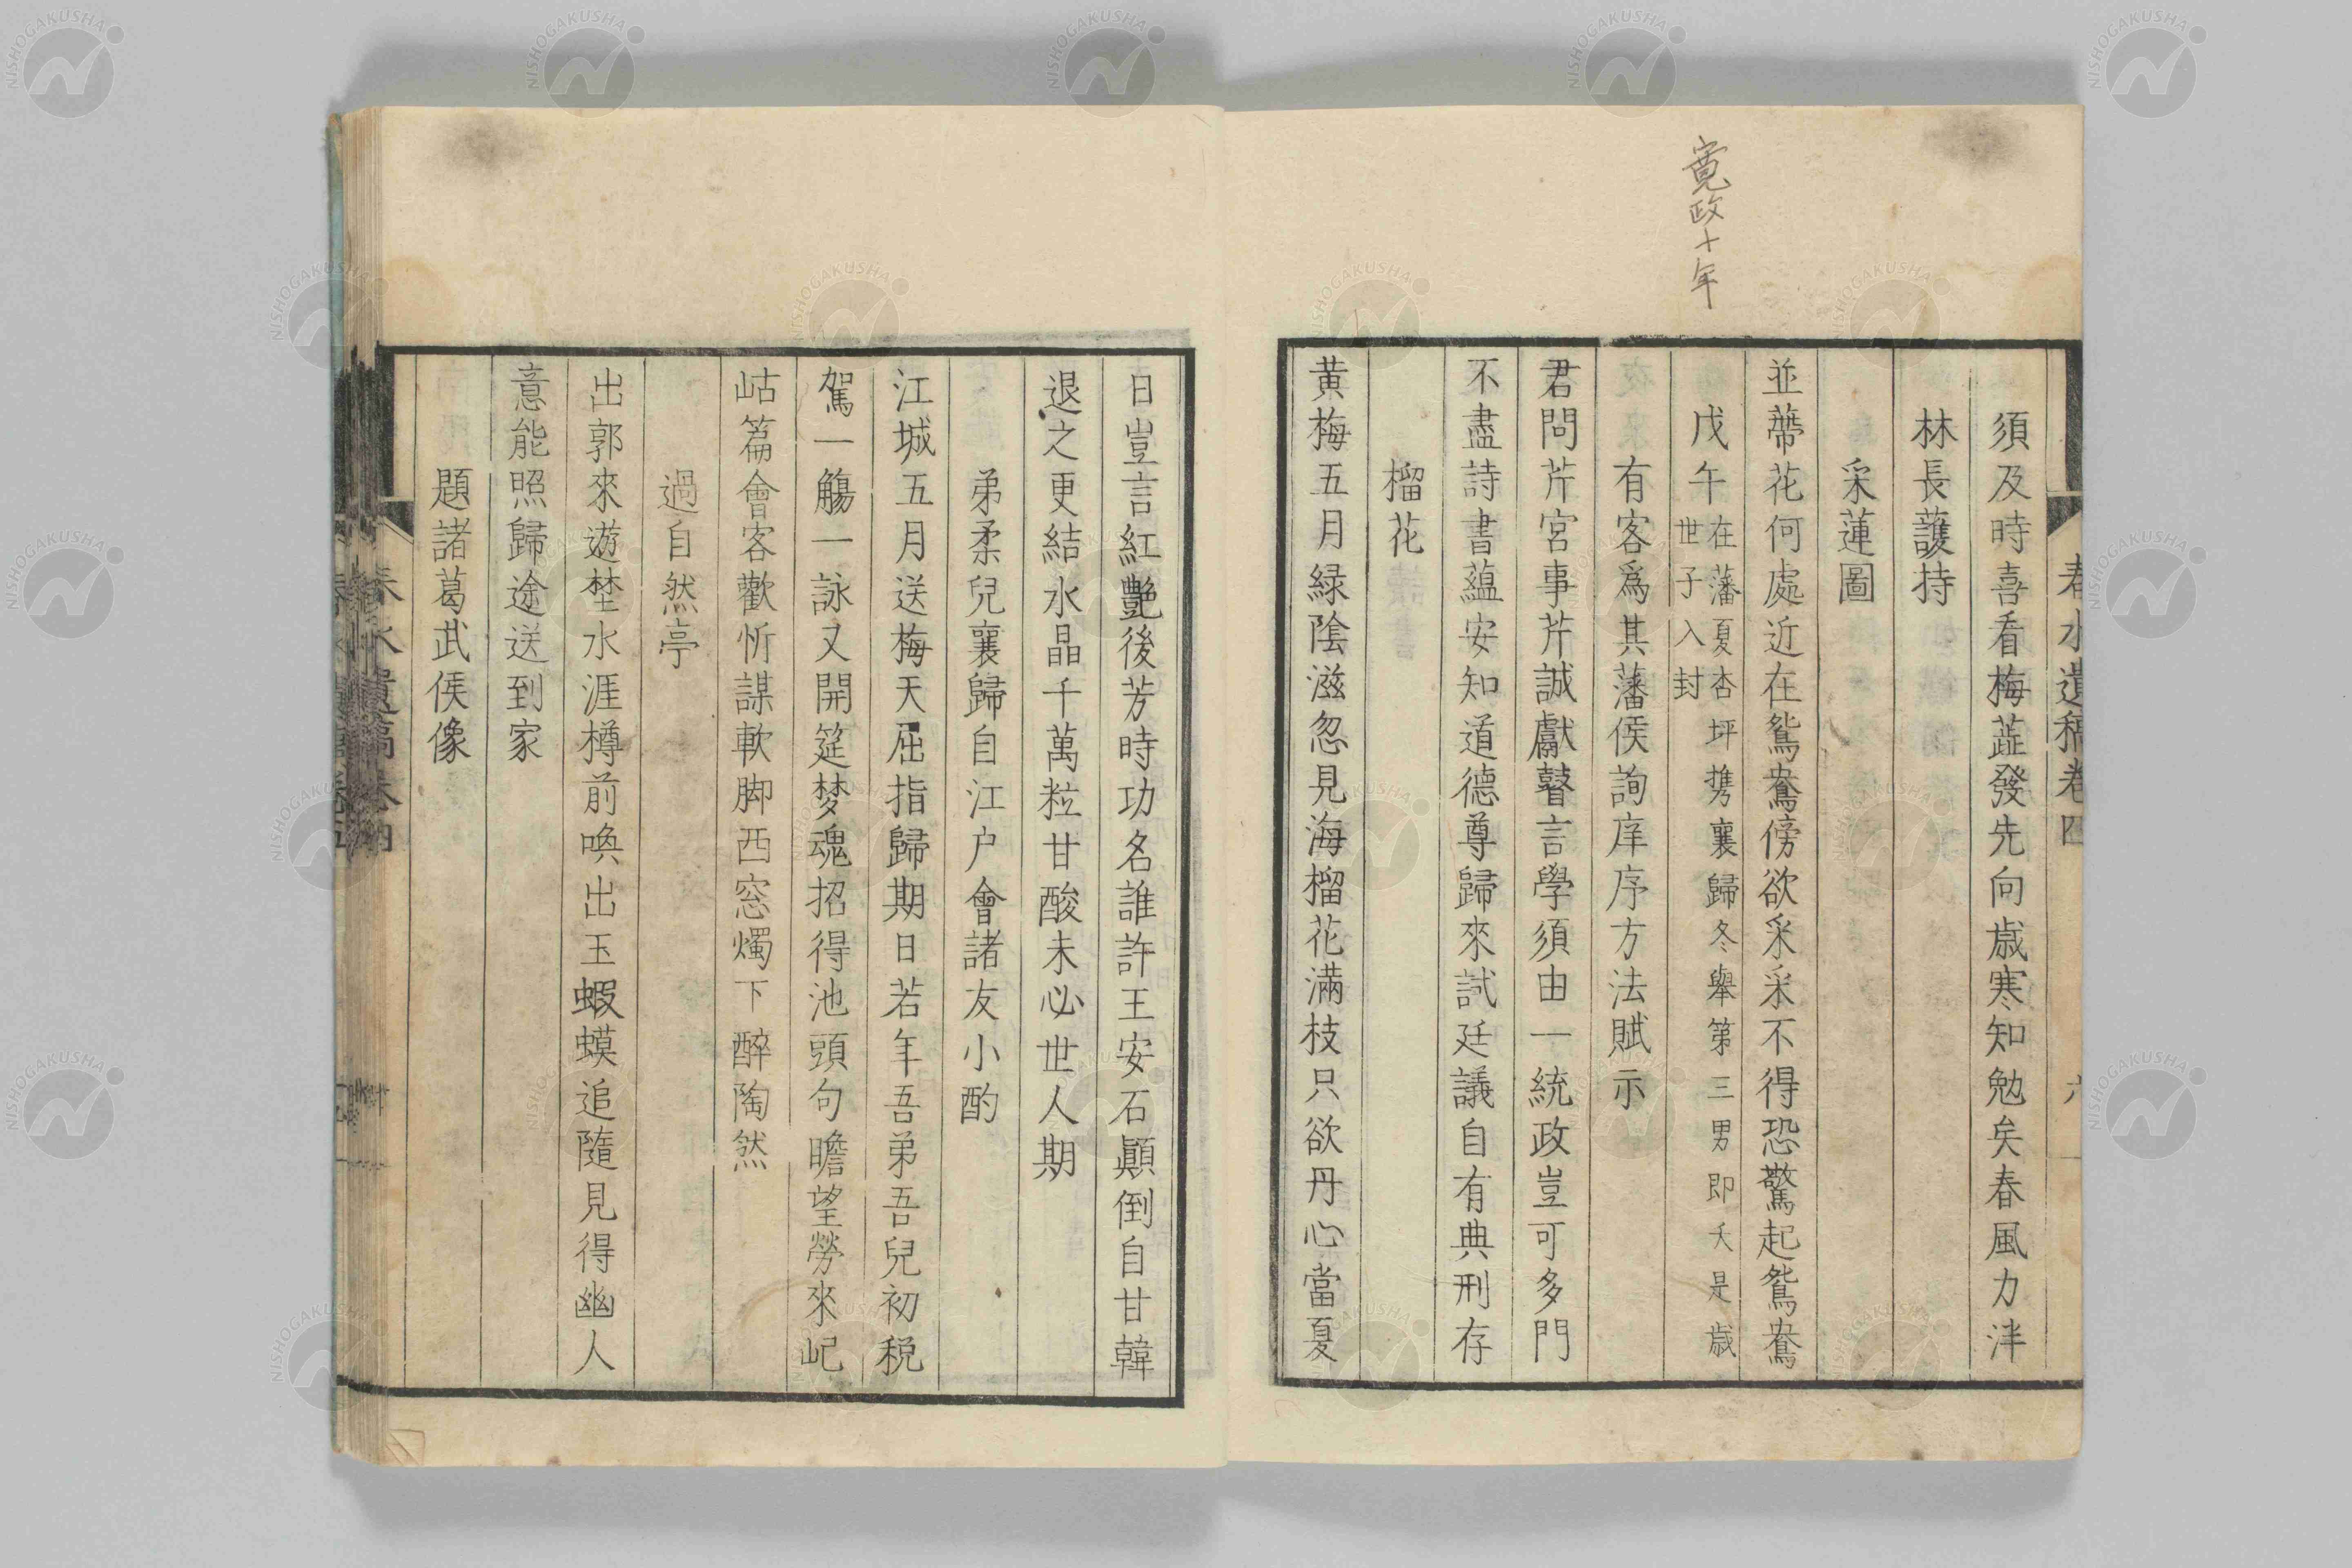 寛政十年
春水遺稿卷四
須及時喜看梅蕋發先向歳寒知勉矣春風力泮
林長護持
采蓮圖
並蔕花何處近在鴛鴦傍欲采采不得恐驚起鴛鴦
戊午在藩夏杏坪携襄歸冬舉第三男即夭是歳
世子入封
有客爲其藩侯詢庠序方法賦示
君問芹宮事芹誠獻瞽言學須由一統政豈可多門
不盡詩書蘊安知道德尊歸來試廷議自有典刑存
榴花
黄梅五月緑陰滋忽見海榴花滿枝只欲丹心當夏
日豈言紅艷後芳時功名誰許王安石顚倒自甘韓
退之更結水晶千萬粒甘酸未必世人期
弟柔兒襄歸自江户會諸友小酌
江城五月送梅天屈指歸期日若年吾弟吾兒初税
駕一觴一詠又開筵梦魂招得池頭句瞻望勞來屺
岵篇會客歡忻謀軟脚西窓燭下醉陶然
過自然亭
出郭來遊埜水涯樽前喚出玉蝦蟆追隨見得幽人
意能照歸途送到家
題諸葛武侯像
春水遺稿卷四